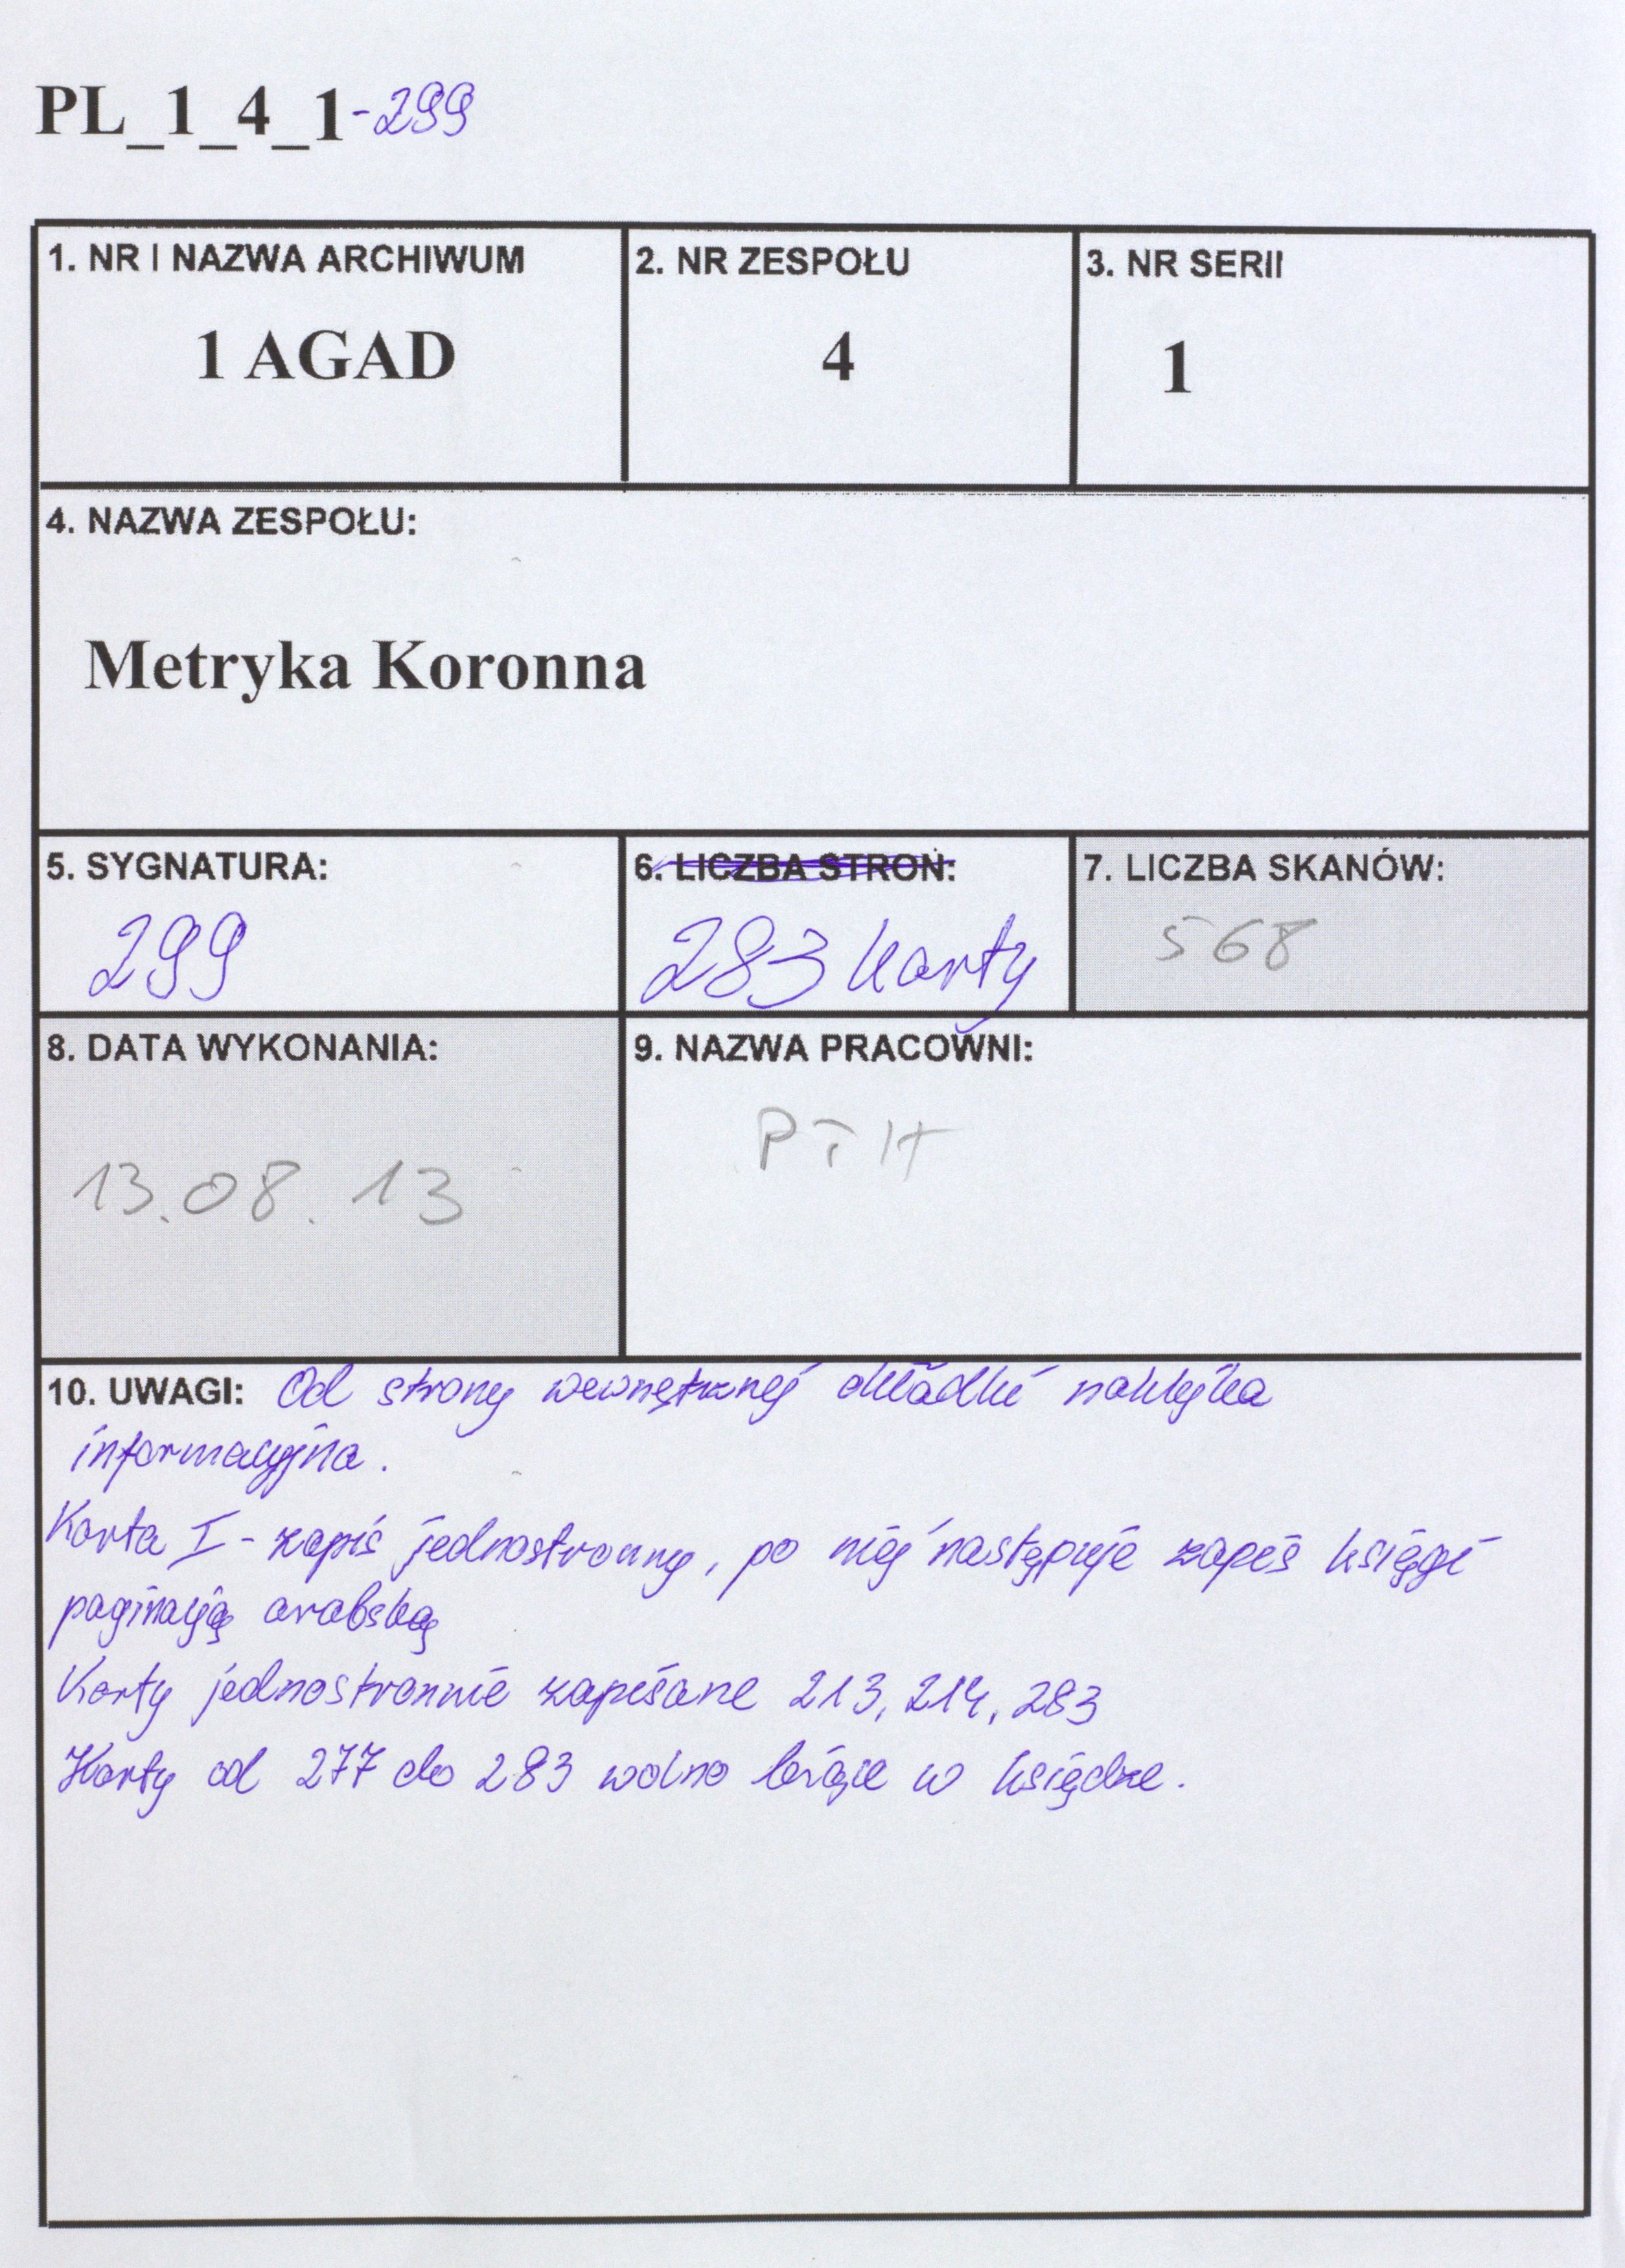 PL_1_4_1-299
1. NR I NAZWA ARCHIWUM
1 AGAD
2. NR ZESPOŁU
4
3. NR SERII
1
4. NAZWA ZESPOŁU:
Metryka Koronna
5. SYGNATURA:
299
6. LICZBA STRON:
283 karty
7. LICZBA SKANÓW:
568
8. DATA WYKONANIA:
13.08.13
9. NAZWA PRACOWNI:
10. UWAGI: Od strony wewnętrznej okładki naklejka
informacyjna.
Karta I - zapis jednostronny, po niej następuje zapis księgi
paginacją arabską
Karty jednostronnie zapisane 213, 214, 283
Karty od 277 do 283 wolno leżące w księdze.